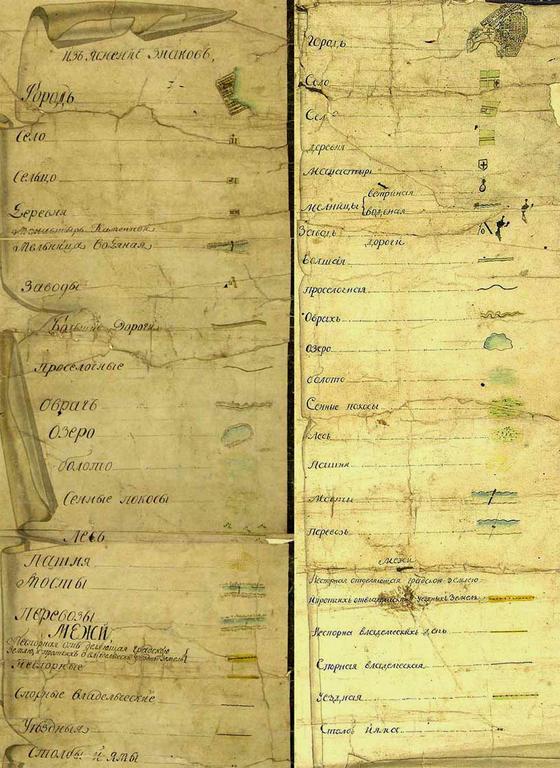 изъяснение знаковъ,
Городъ
Село
Сельцо
Деревня
Монастырь Каменной
Мельница водяная
Заводы
Большие Дороги
Проселочные
Оврагъ
Озеро
болото
Сенные покосы
Лесъ
Пашня
Мосты
Перевозы
МЕЖИ
Неспорная отъ деляющая градскую
Землю
Неспорные
Спорные владельческие
Уездныя
Столбы и ямы
Городъ
Село
Сел
деревня
Монастырь
ветряная
Мелницы
водяная
Заводъ
дороги
Болшая
проселочная
Оврахъ
Озеро
болото
Сенные покосы
Лесъ
Пашня
Мосты
Перевозъ
межи
Неспорная отделяющая градскую землю
уездныхъ Земель
Неспорна владелческихъ дачь
Спорная владелческая
Уездная
Столбъ и яма